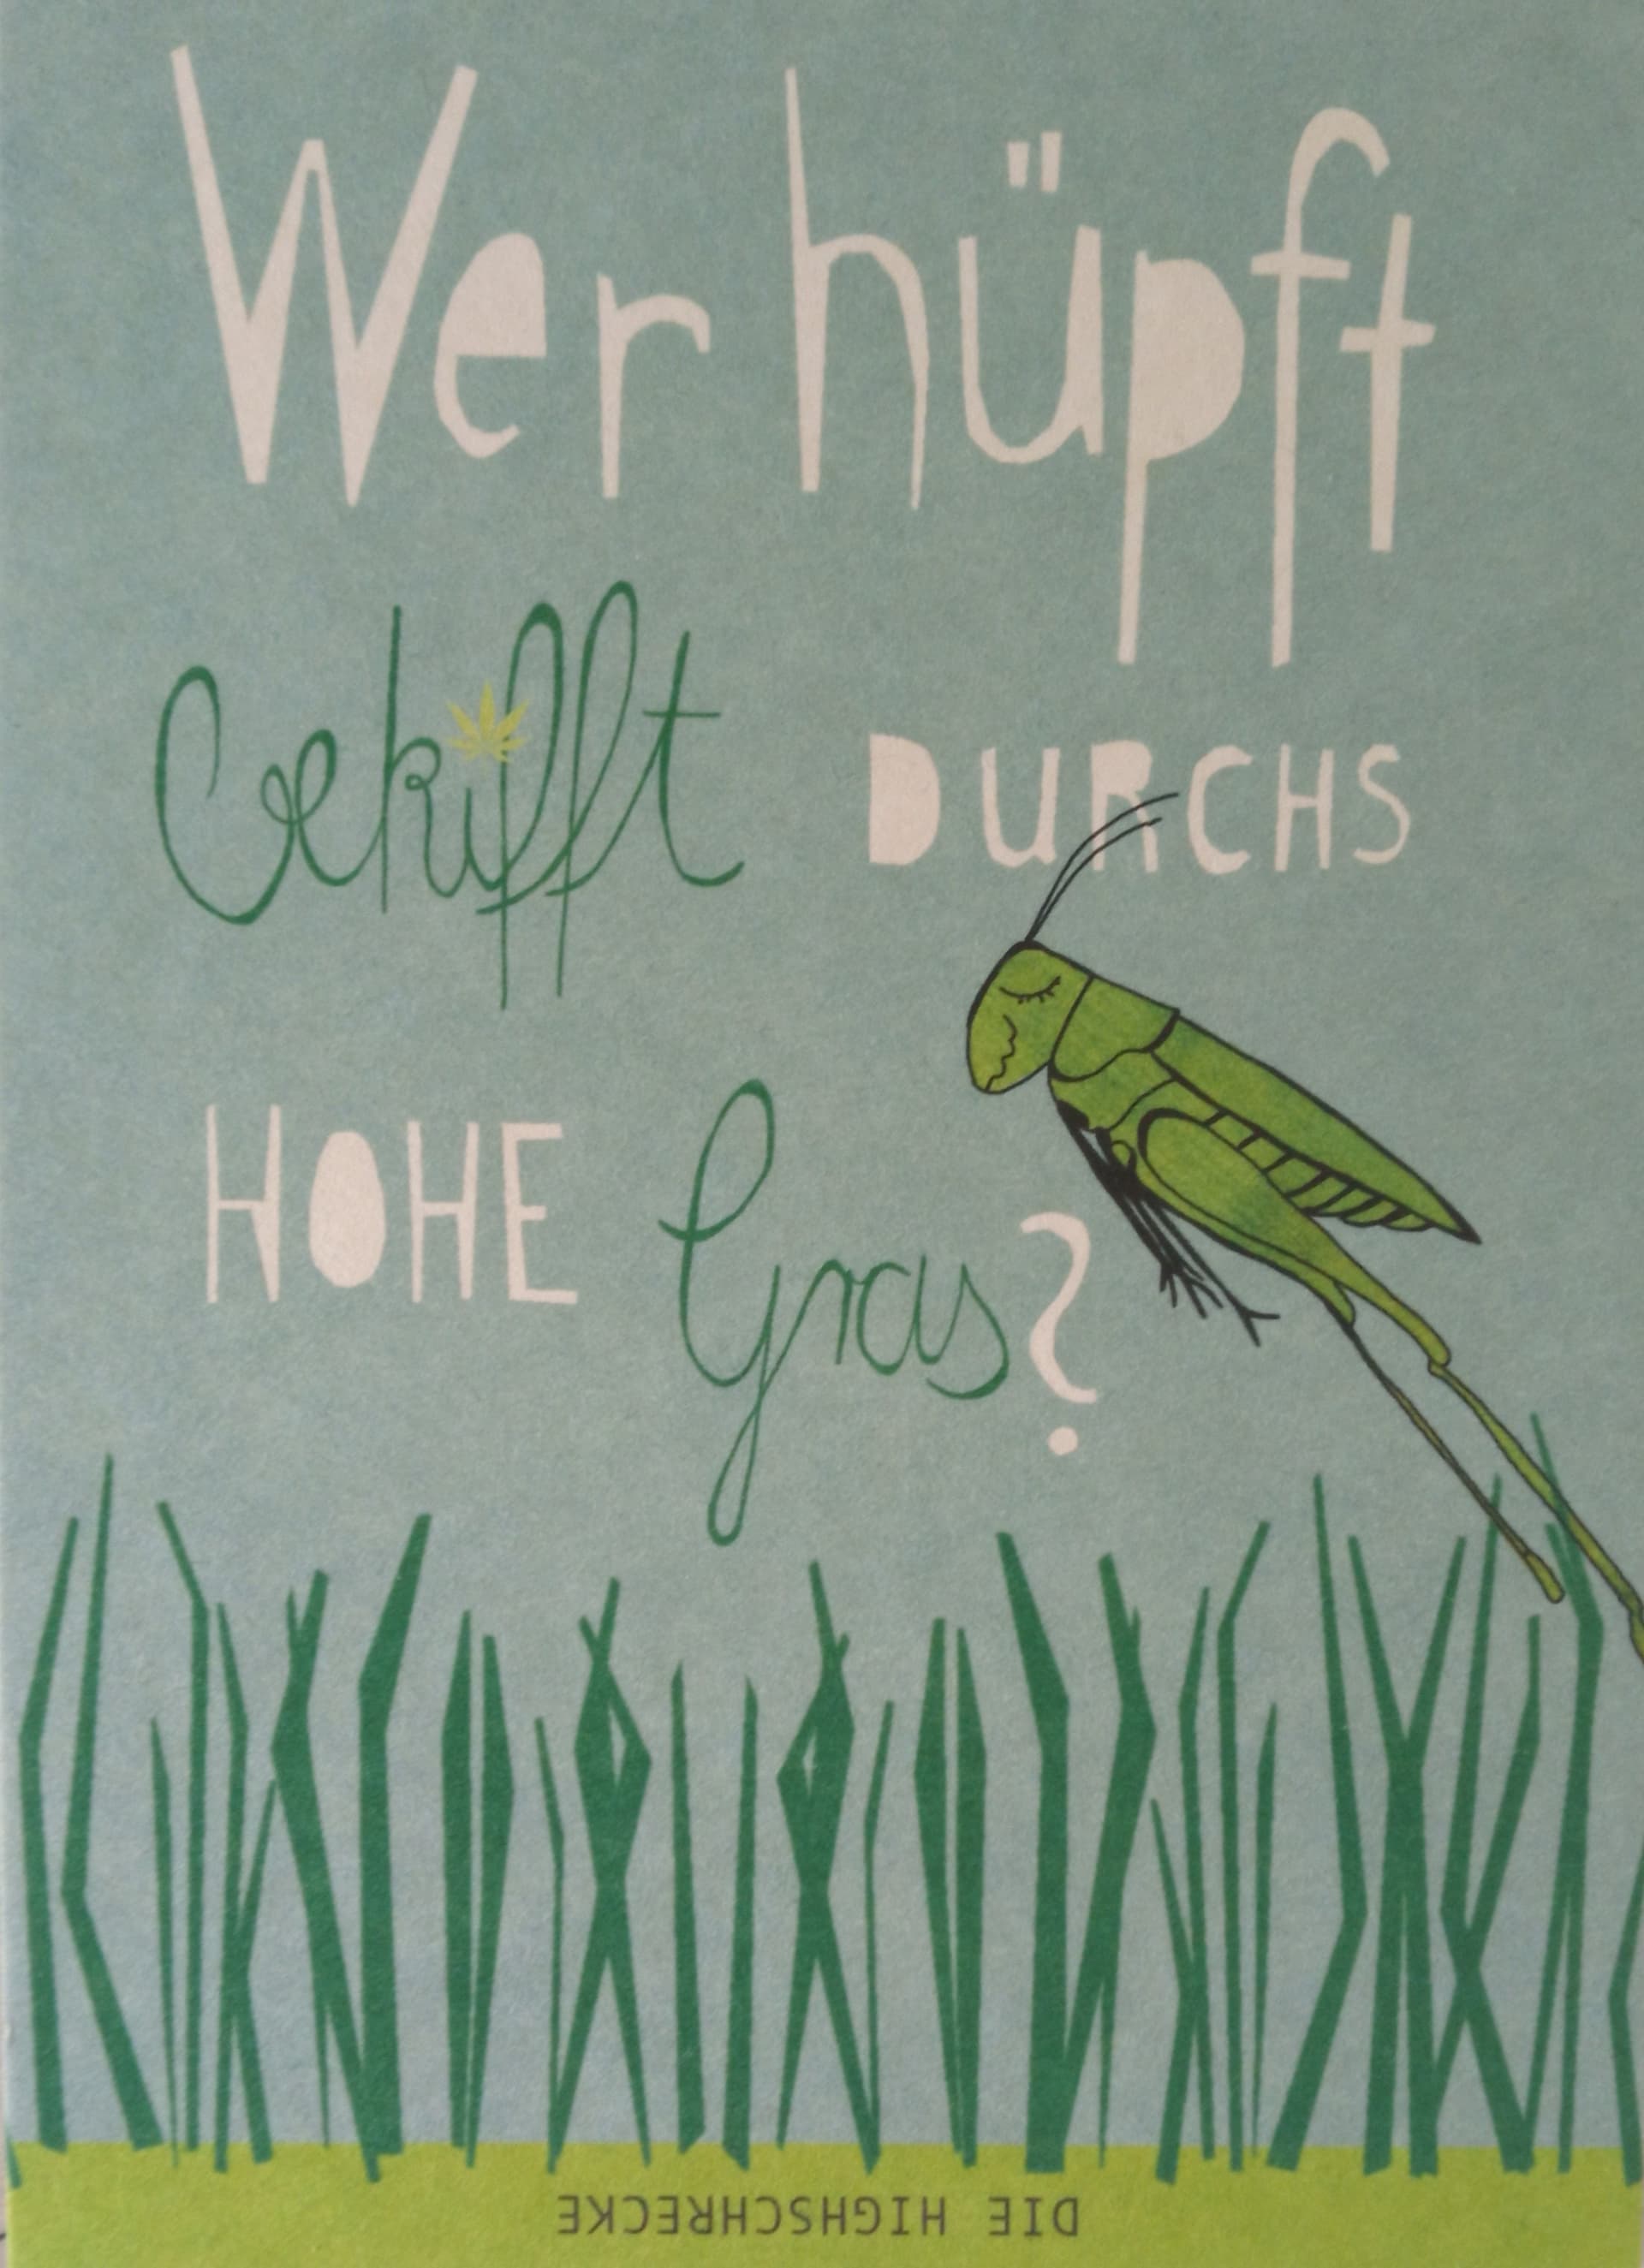 Wer hüpft
Gekifft DURCHS
HOHE Gras?
DIE HIGHSCHRECKE